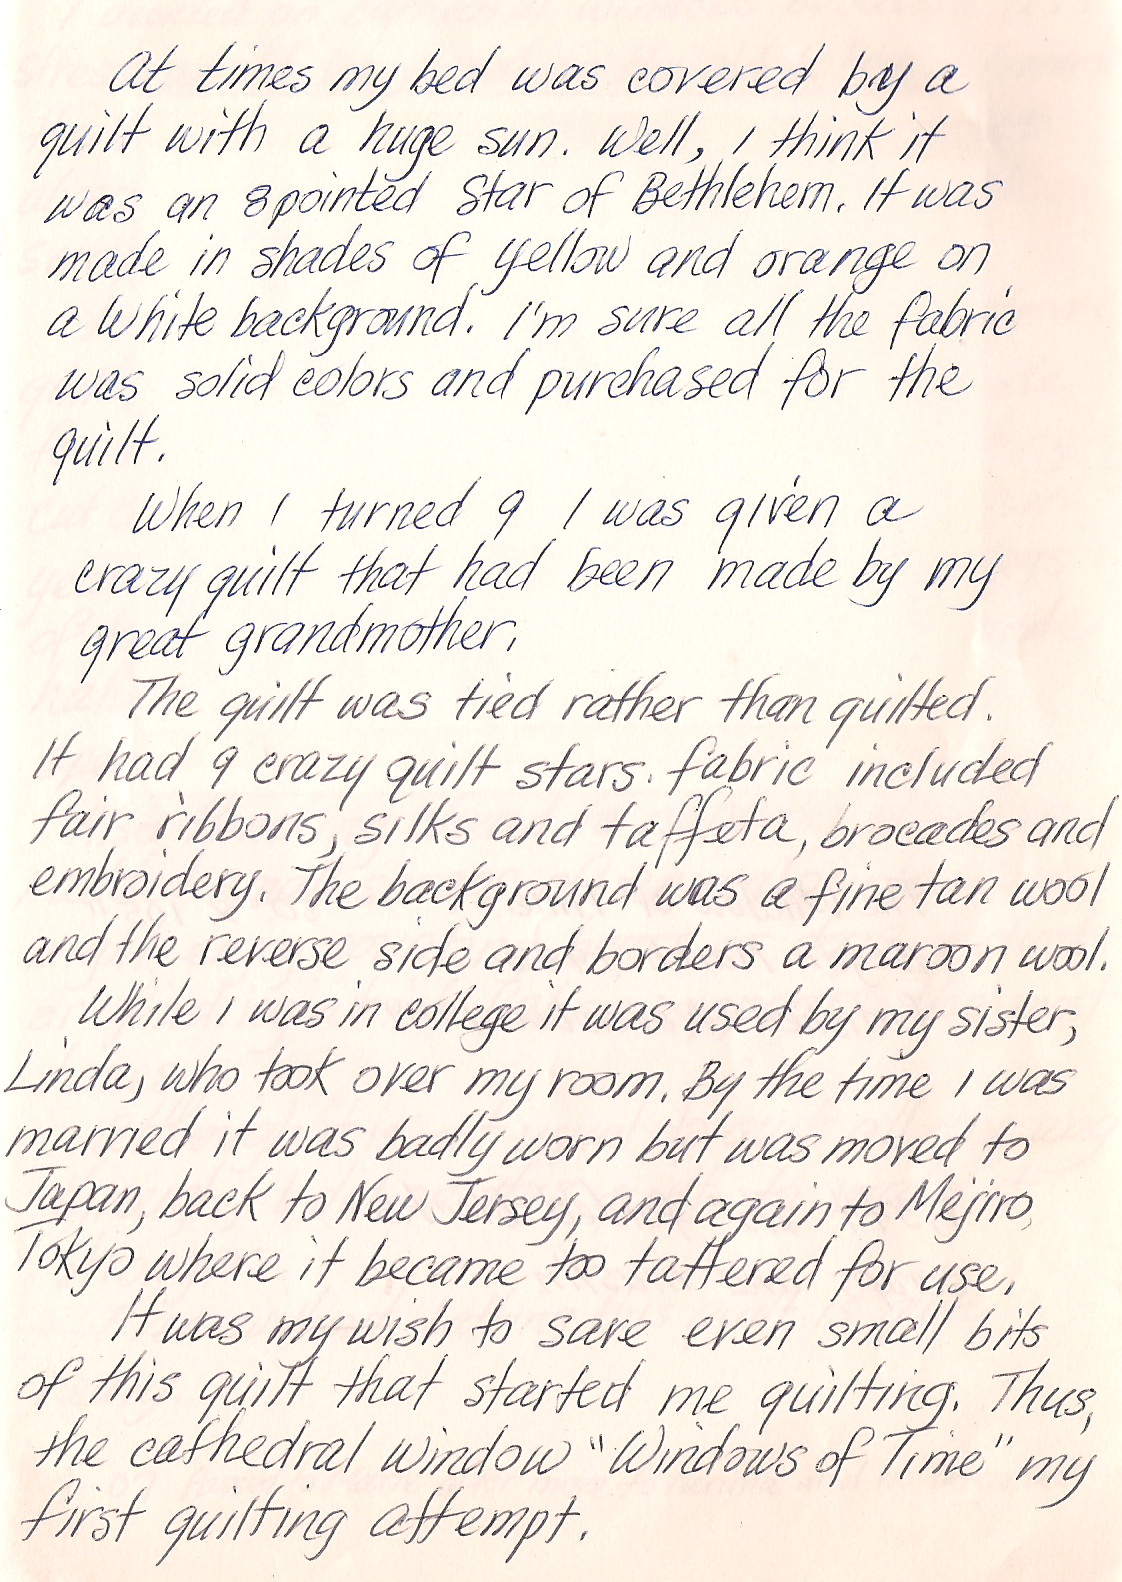 At times my bed was covered by a
quilt with a huge sun. Well, I think it
was an 8 pointed Star of Bethlehem. It was
made in shades of yellow and orange on
a white background. I'm sure all the fabric
was solid colors and purchased for the
quilt.
When I turned 9 I was given a
crazy quilt that had been made by my
great grandmother.
The quilt was tied rather than quilted.
It had 9 crazy quilt stars. fabric included
fair ribbons, silks and taffeta, brocades and
embroidery. The background was a fine tan wool
and the reverse side and borders a maroon wool.
While I was in college it was used by my sister,
Linda, who took over my room. By the time I was
married it was badly worn but was moved to
Japan, back to New Jersey, and again to Mejiro,
Tokyo where it became too tattered for use.
It was my wish to save even small bits
of this quilt that started me quilting. Thus,
the cathedral window "Windows of Time" my
first quilting attempt.